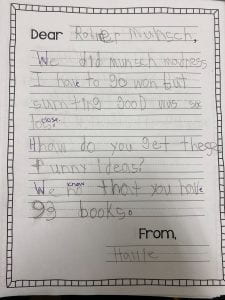 Dear Robert Munsch,
We did munsch madness
I have to go won but
sumting good mus
close.
Hhow do you get these
funny Ideas?
know
We no that you have
93 books.
From,